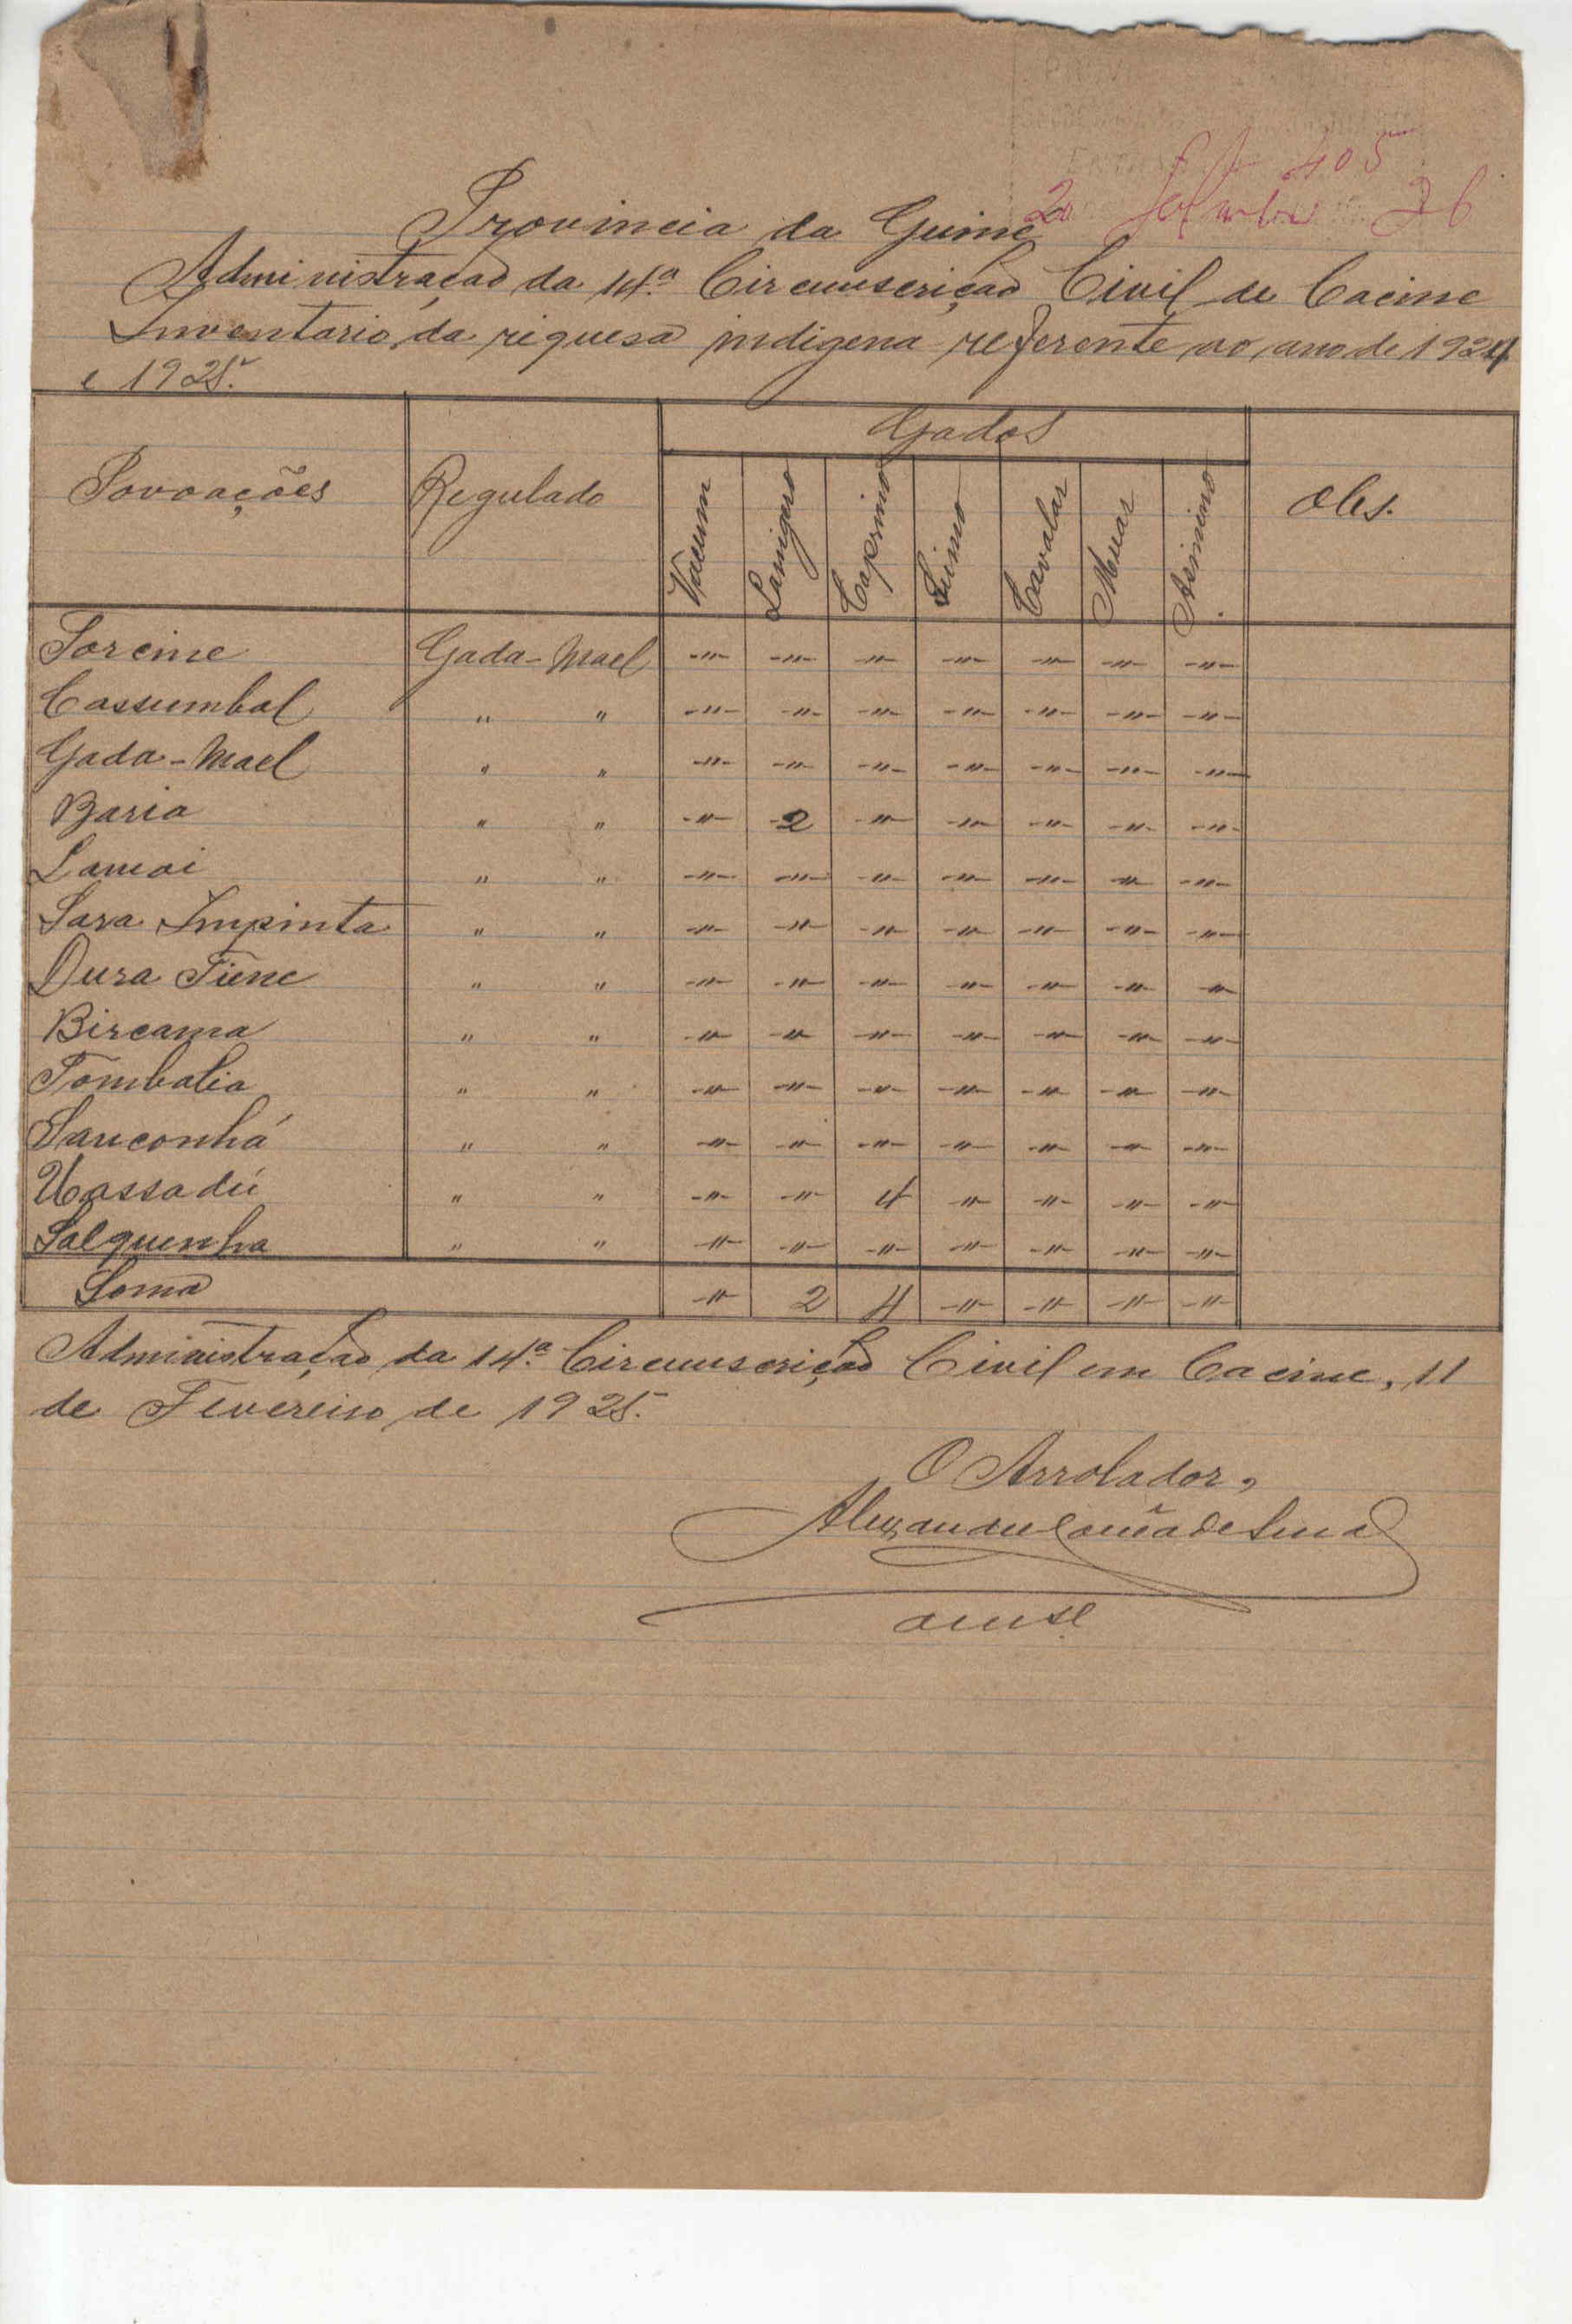 405
20 Setembro 26
Provincia da Guiné
Administração da 14.ª Circumscrição Civil de Cacine
Inventario da riquesa indigena referente ao ano de 1924
e 1925.
Povoações Regulado Gados Obs.
Vacum Lanigero Caprino Suino Cavalar Muar Asinino
Porcine Gada-Mael -"- -"- -"- -"- -"- -"- -"-
Cassumbal " " -"- -"- -"- -"- -"- -"- -"-
Gada-Mael " " -"- -"- -"- -"- -"- -"- -"-
Baria " " -"- 2 -"- -"- -"- -"- -"-
Lamoi " " -"- -"- -"- -"- -"- -"- -"-
Sara Impinta " " -"- -"- -"- -"- -"- -"- -"-
Dura Tiene " " -"- -"- -"- -"- -"- -"- -"-
Bircama " " -"- -"- -"- -"- -"- -"- -"-
Tombalia " " -"- -"- -"- -"- -"- -"- -"-
Sanconhá " " -"- -"- -"- -"- -"- -"- -"-
Uassadú " " -"- -"- 4 -"- -"- -"- -"-
Salquenha " " -"- -"- -"- -"- -"- -"- -"-
Soma -"- 2 4 -"- -"- -"- -"-
Administração da 14.ª Circumscrição Civil em Cacine, 11
de Fevereiro de 1925.
O Arrolador,